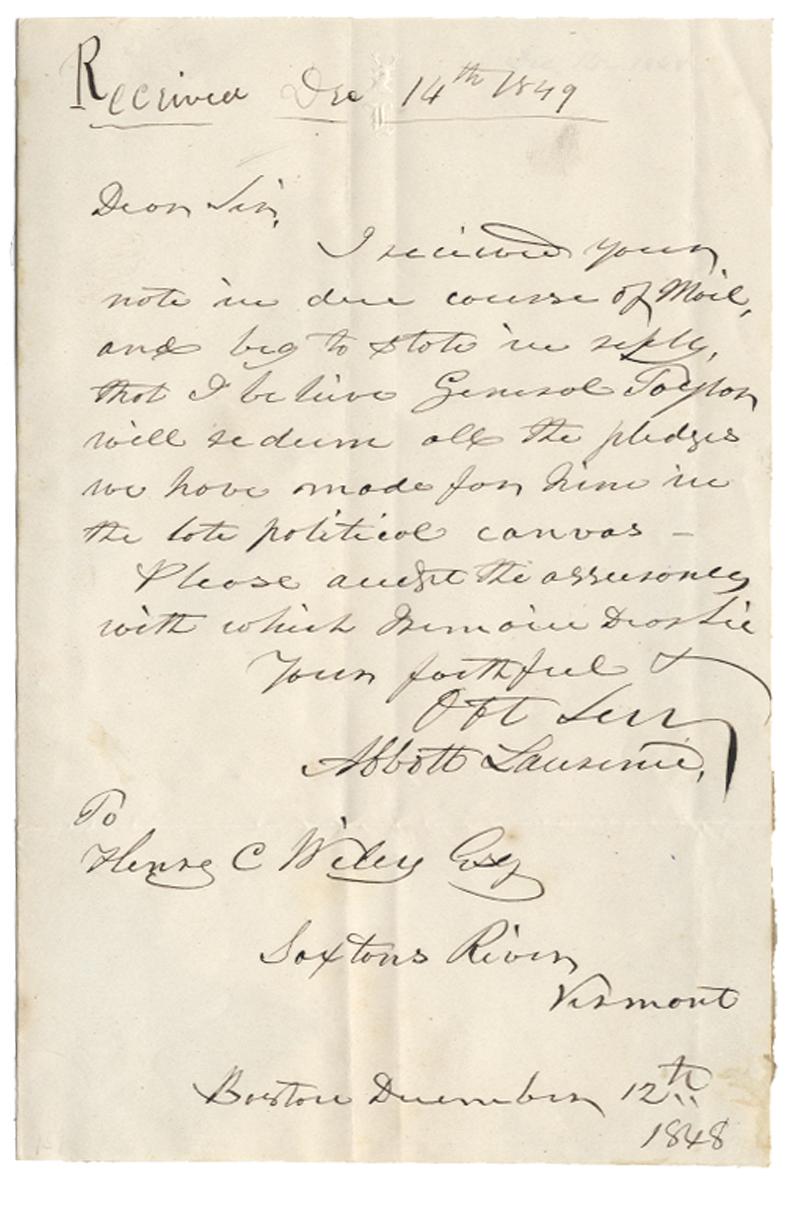 Received Dec 14th 1849
Dear Sir,
I received your
note in due course of Mail,
and beg to state in reply,
that I believe General Taylor
will redeem all the pledges
we have made for him in
the late political canvas –
Please accept the assurances
with which I remain Dear Sir
Your faithful &
Obt Serv
Abbott Lawrence,
To
Henry C Wiley Esq
Saxtons River
Vermont
Boston December 12th
1848